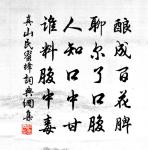 釀成百花脾
聊尔了口腹
人知口中甘
誰料腹中毒
真山民蜜蜂詞典網集